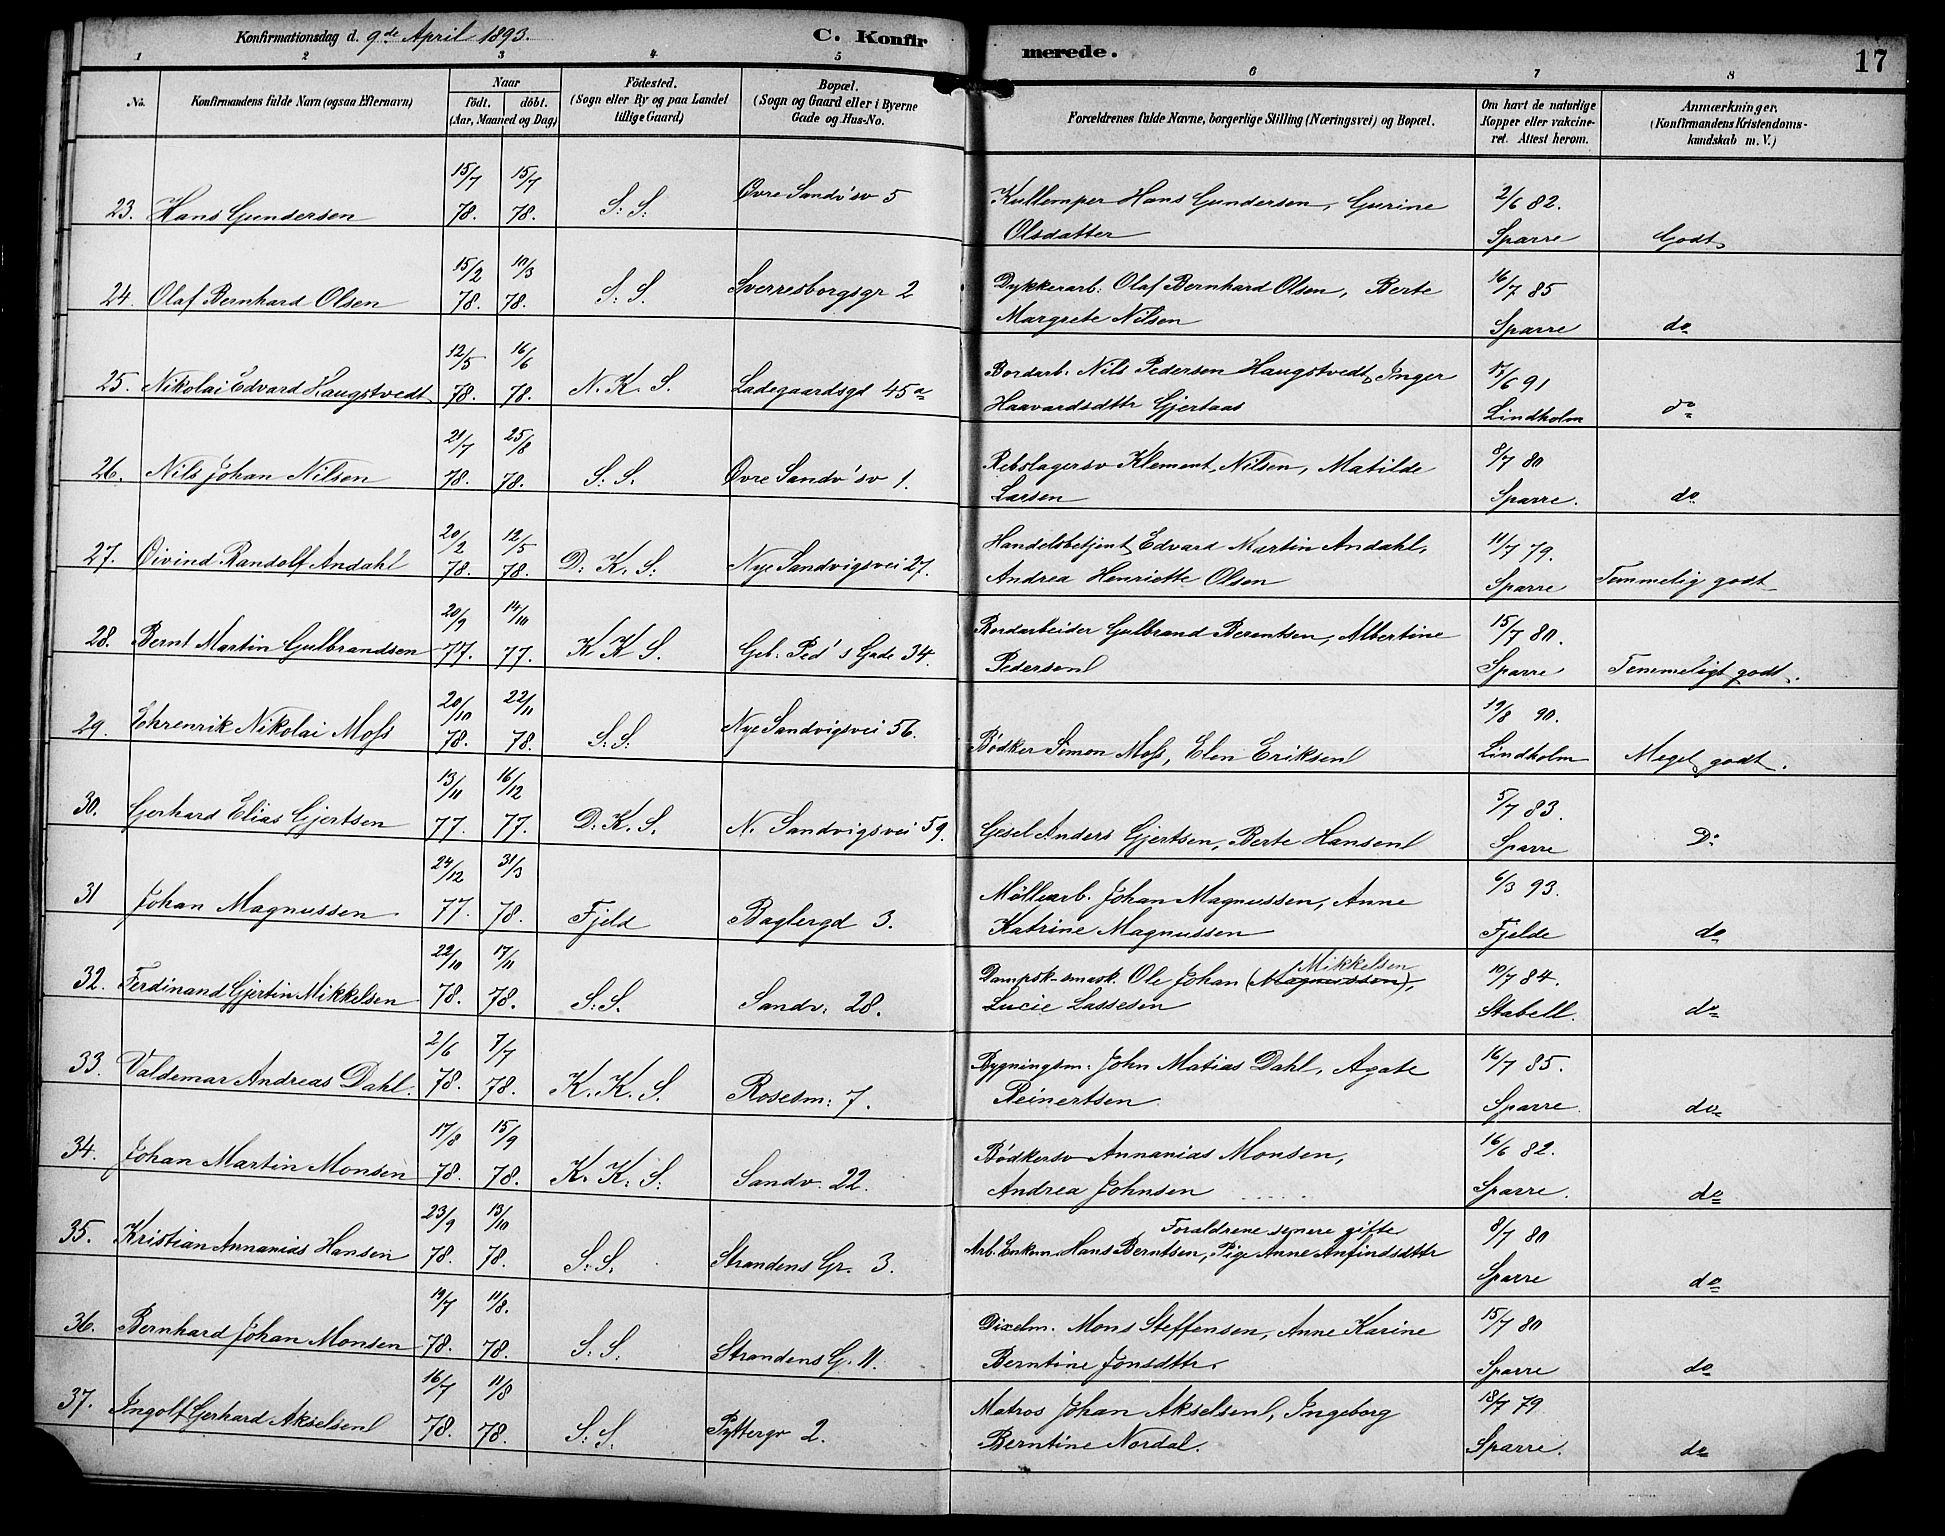 Konfirmationsdag d. 9de April 1893.
C. Konfirmerede.
17
1 2 3 4 5 6 7 8
No.
Konfirmandens fulde Navn (ogsaa Efternavn)
Naar
födt. döbt.
(Aar, Maaned og Dag)
Födested.
(Sogn eller By og paa Landet
tillige Gaard)
Bopæl.
(Sogn og Gaard eller i Byerne
Gade og Hus-No.
Forældrenes fulde Navne, borgerlige Stilling (Næringsvei) og Bopæl.
Om havt de naturlige
Kopper eller vakcine-
ret. Attest herom.
Anmærkninger,
(Konfirmandens Kristendoms-
kundskab m. V.)
23. Hans Gundersen 15/7 78. 15/7 78. S. S. Øvre Sandv'sv 5 Kullemper Hans Gundersen, Gurine 2/6 82.
Olsdatter Sparre Godt
24. Olaf Bernhard Olsen 15/2 78. 10/3 78. S. S. Sverresborgsgr 2 Dykkerarb. Olaf Bernhard Olsen, Berte 16/7 85
Margrete Nilsen Sparre do
25. Nikolai Edvard Haugstvedt 12/5 78. 16/6 78. N. K. S. Ladegaardsgd 45a Bordarb. Nils Pedersen Haugstvedt, Inger 17/6 91
Haavardsdttr Gjertaas Lindholm do
26. Nils Johan Nilsen 21/7 78. 25/8 78. S. S. Øvre Sandv'sv 1. Rebslagersv Klement Nilsen, Matilde 8/7 80
Larsen Sparre. do
27. Öivind Randolf Andahl 20/2 78. 12/5 78. D. K. S. Nye Sandvigsvei 27. Handelsbetjent Edvard Martin Andahl, 11/7 79.
Andrea Henriette Olsen Sparre Temmelig godt
28. Bernt Martin Gulbrandsen 20/9 77. 14/10 77. K. K. S. Geb. Ped's Gade 34. Bordarbeider Gulbrand Berentsen, Albertine 15/7 80.
Pedersen Sparre Temmeligt godt.
29. Ehrenrik Nikolai Moss 20/10 78. 22/11 78. S. S. Nye Sandvigsvei 56. Bödker Simon Moss, Elen Eriksen 19/8 90.
Lindholm Meget godt.
30. Gerhard Elias Gjertsen 13/11 77. 16/12 77. D. K. S. N. Sandvigsvei 59. Gesel Anders Gjertsen, Berte Hansen 5/7 83.
Sparre Do
31 Johan Magnussen 24/12 77. 31/3 78. Fjeld Baglergd 3. Møllearb. Johan Magnussen, Anne 6/3 93.
Katrine Magnussen Fjelde do
32. Ferdinand Gjertin Mikkelsen 22/10 78. 17/11 78. S. S. Sandv. 28. Dampsk-smask. Ole Johan (Magnussen) Mikkelsen, 10/7 84.
Lucie Lassesen Stabell. do
33. Valdemar Andreas Dahl. 2/6 78. 7/7 78. K. K. S. Rosesm. 7. Bygningsm. John Matias Dahl, Agate 16/7 85.
Reinertsen Sparre. do
34. Johan Martin Monsen 17/8 78. 15/9 78. K. K. S. Sandv. 22. Bödkersv Annanias Monsen, 16/6 82.
Andrea Johnsen Sparre. do
35. Kristian Annanias Hansen 23/9 78. 13/10 78. S. S. Strandens Gr. 3. Forældrene senere gifte 8/7 80
Arb. Enkem. Hans Berntsen, Pige Anne Anfindsdttr
Sparre do
36. Bernhard Johan Monsen 19/7 78. 11/8. 78. S. S. Strandens G. 11. Dixelm. Mons Steffensen, Anne Karine 15/7 80
Berntine Jonsdttr. Sparre do
37. Ingolf Gerhard Akselsen 16/7 78. 11/8 78. S. S. Pyttergr 2. Matros Johan Akselsen, Ingeborg 18/7 79
Berntine Nordal. Sparre. do